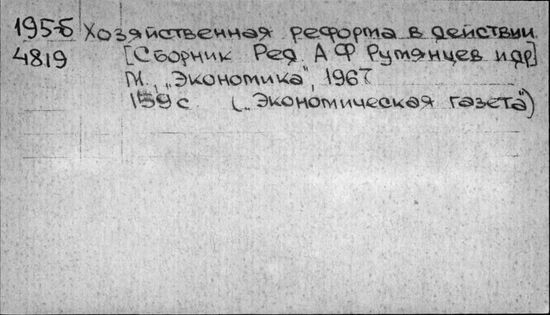 195-б Хозяйственная реформа в действии
4819 [Сборник Ред. А Ф Румянцев и др]
М., "Экономика", 1967
159 с. ("Экономическая газета")